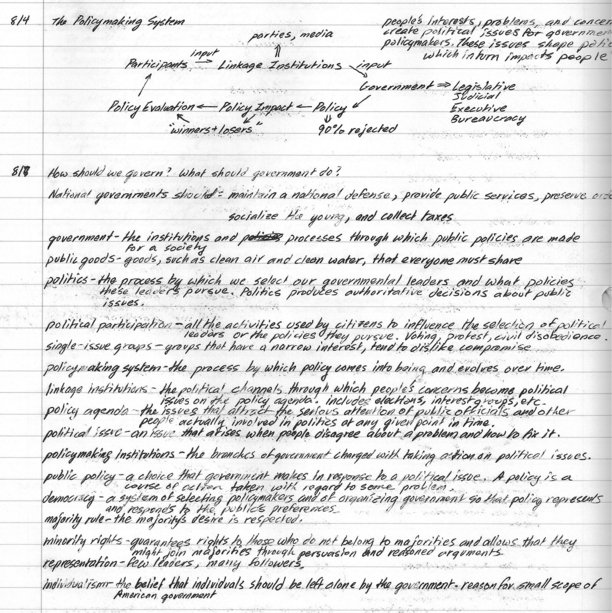 8/4 The Policymaking System people's interests, problems, and concer
parties, media create political issues for governmen
policymakers. These issues shape polic
input which in turn impacts people
Participants → Linkage Institutions input
Government ⇒ Legislative
Judicial
Policy Evaluation ← Policy Impact ← Policy Executive
Bureaucracy
"winners + losers" 90% rejected
8/8 How should we govern? What should government do?
National governments should: maintain a national defense, provide public services, preserve orde
socialize the young, and collect taxes
government - the institutions and processes through which public policies are made
for a society
public goods - goods, such as clean air and clean water, that everyone must share
politics - the process by which we select our governmental leaders and what policies
these leaders pursue. Politics produces authoritative decisions about public
issues.
political participation - all the activities used by citizens to influence the selection of political
leaders or the policies they pursue. Voting, protest, civil disobedience.
single-issue groups - groups that have a narrow interest, tend to dislike compromise
policymaking system - the process by which policy comes into being and evolves over time.
linkage institutions - the political channels through which people's concerns become political
issues on the policy agenda. includes elections, interest groups, etc.
policy agenda - the issues that attract the serious attention of public officials and other
people actually involved in politics at any given point in time.
political issue - an issue that arises when people disagree about a problem and how to fix it.
policymaking institutions - the branches of government charged with taking action on political issues.
public policy - a choice that government makes in response to a political issue. A policy is a
course of action taken with regard to some problem.
democracy - a system of selecting policymakers and of organizing government so that policy represents
and responds to the public's preferences
majority rule - the majority's desire is respected.
minority rights - guarantees rights to those who do not belong to majorities and allows that they
might join majorities through persuasion and reasoned arguments.
representation - few leaders, many followers.
individualism - the belief that individuals should be left alone by the government - reason for small scope of
American government